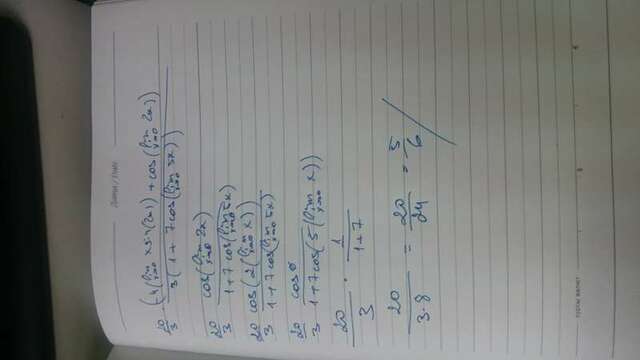 20/3 · (4(lim x→0 x sin(2x)) + cos(lim x→0 2x)) / 3(1 + 7cos(lim x→0 5x))
20/3 cos(lim x→0 2x) / 1 + 7cos(lim x→0 5x)
20/3 cos(2(lim x→0 x)) / 1 + 7cos(lim x→0 5x)
20/3 cos0 / 1 + 7cos(5(lim x→0 x))
20/3 · 1/1+7
20/3·8 = 20/24 = 5/6